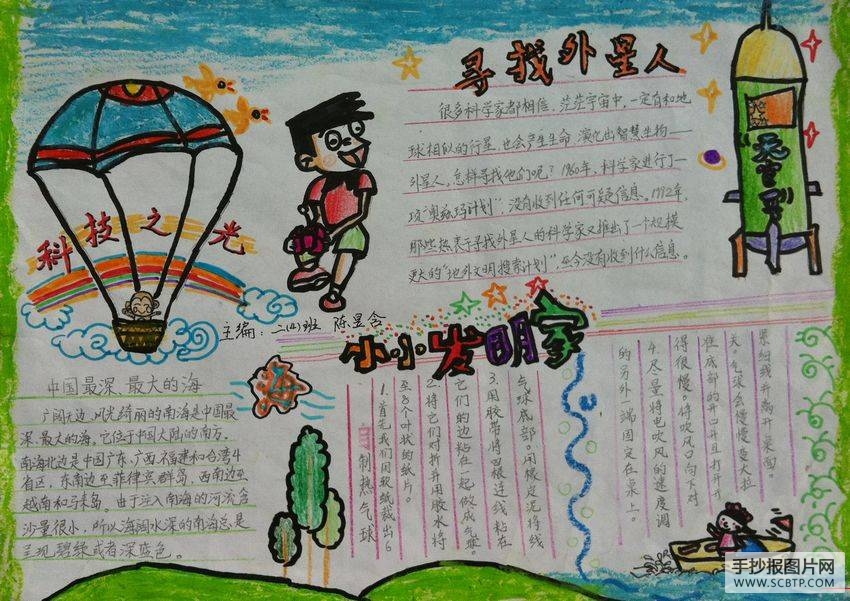 寻找外星人
很多科学家都相信，茫茫宇宙中，一定有和地
球相似的行星，也会产生生命，演化出智慧生物——
外星人，怎样寻找他们呢？1960年，科学家进行了一
项“奥兹玛计划”，没有收到任何可疑信息。1972年，
那些热衷于寻找外星人的科学家又推出了一个规模
更大的“地外文明搜索计划”，至今没有收到什么信息。
科技之光
主编：二(4)班 陈昱含
小小发明家
中国最深、最大的海
广阔无边、风光绮丽的南海是中国最
深、最大的海，它位于中国大陆的南方。
南海北边是中国广东、广西、福建和台湾4
省区，东南边至菲律宾群岛，西南边至
越南和马来岛。由于注入南海的河流含
沙量很小，所以海阔水深的南海总是
呈现碧绿或者深蓝色。
自制热气球
1.首先我们用胶纸裁出6
至8个叶状的纸片。
2.将它们对折并用胶水将
它们的边粘在一起，做成气球
3.用胶带将四根连线粘在
气球底部。用橡皮泥将线
的另外一端固定在桌上。
4.尽量将电吹风的速度调
得很慢。将吹风口向下对
准底部的开口并且打开开
关。气球会慢慢变大拉
紧细线并离开桌面。
海
手抄报图片网
WWW.SCBTP.COM